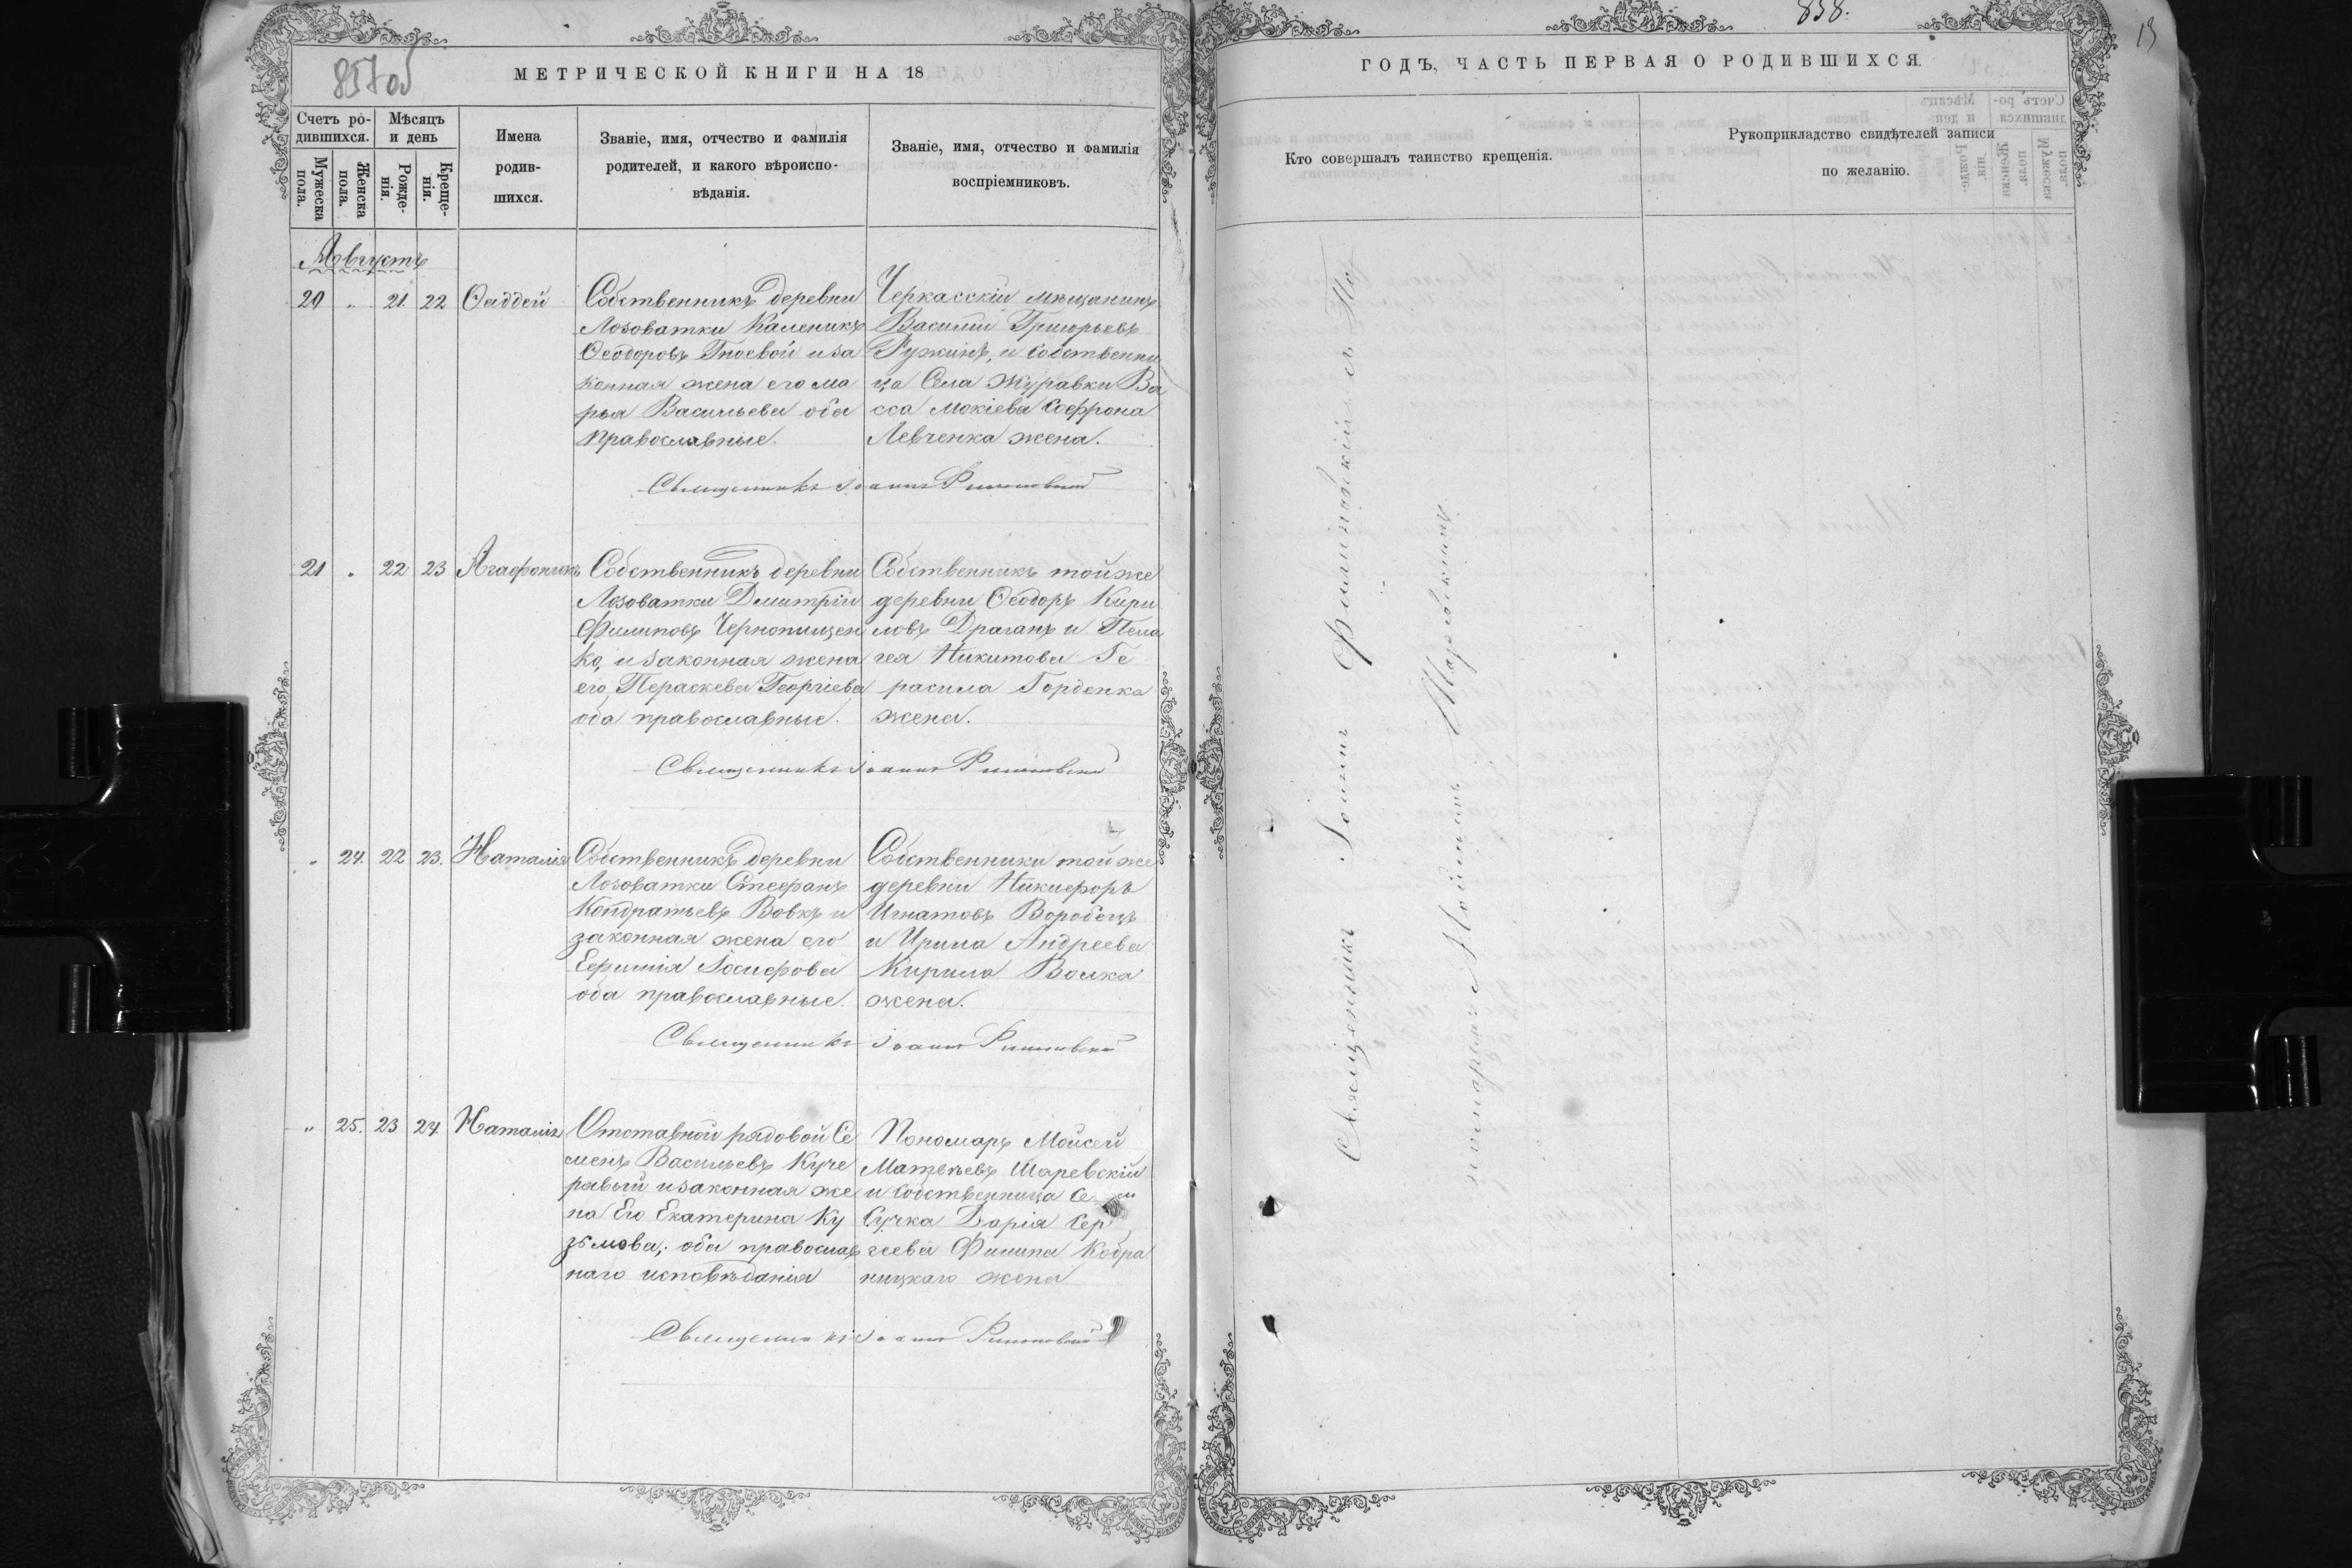 857об
МЕТРИЧЕСКОЙ КНИГИ НА 18
Счетъ ро-
дившихся.
Мѣсяцъ
и день
Мужеска
пола.
Женска
пола.
Рожде-
нія.
Креще-
нія.
Имена
родив-
шихся.
Званіе, имя, отчество и фамилія
родителей, и какого вѣроиспо-
вѣданія.
Званіе, имя, отчество и фамилія
воспріемниковъ.
Августъ
20 " 21 22 Ѳаддей
Собственникъ деревни
Лозоватки Каленикъ
Ѳеодоровъ Гноевой и за
конная жена его Ма
рья Васильева оба
православные.
Черкасскій мѣщанинъ
Василій Григорьевъ
Ружинъ, и собственни
ца Села Журавки Ва
сса Мокіева Софрона
Левченка жена.
Священникъ Іоаннъ
21 " 22 23 Агафоникъ
Собственникъ деревни
Лозоватки Димитрій
Филиповъ Чернопищен
ко, и законная жена
его Параскева Георгіева
оба православные.
Собственникъ той же
деревни Ѳеодоръ Кири
ловъ Драганъ и Пела
гея Никитова Ге
расима Горденка
жена.
Священникъ Іоаннъ
" 24. 22 23. Наталія
Собственникъ деревни
Лозоватки Стефанъ
Кондратьевъ Вовкъ и
законная жена его
Евфимія Іосифова
оба православные.
Собственники той же
деревни Никифоръ
Игнатовъ Воробецъ
и Ирина Андреева
Кирила Волка
жена.
Священникъ Іоаннъ
" 25. 23 24 Наталія
Отставной рядовой Се
менъ Васильевъ Куче
рявый и законная же
на Его Екатерина Ку
зьмова, оба православ
наго исповѣданія
Пономарь Мойсей
Матвѣевъ Шаревскій
и собственница Се
Сучка Дарія Сер
гѣева Филипа Кобра
ницкаго жена
Священникъ Іоаннъ
858.
13
ГОДЪ, ЧАСТЬ ПЕРВАЯ О РОДИВШИХСЯ.
Кто совершалъ таинство крещенія.
Рукоприкладство свидѣтелей записи
по желанію.
Священникъ Іоаннъ съ По
номаремъ Мойсеемъ Шаревскимъ